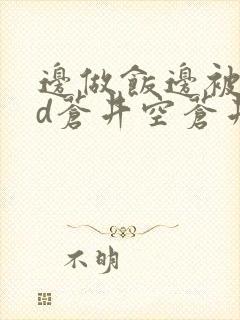 邊做飯邊被
d蒼井空蒼井
不明